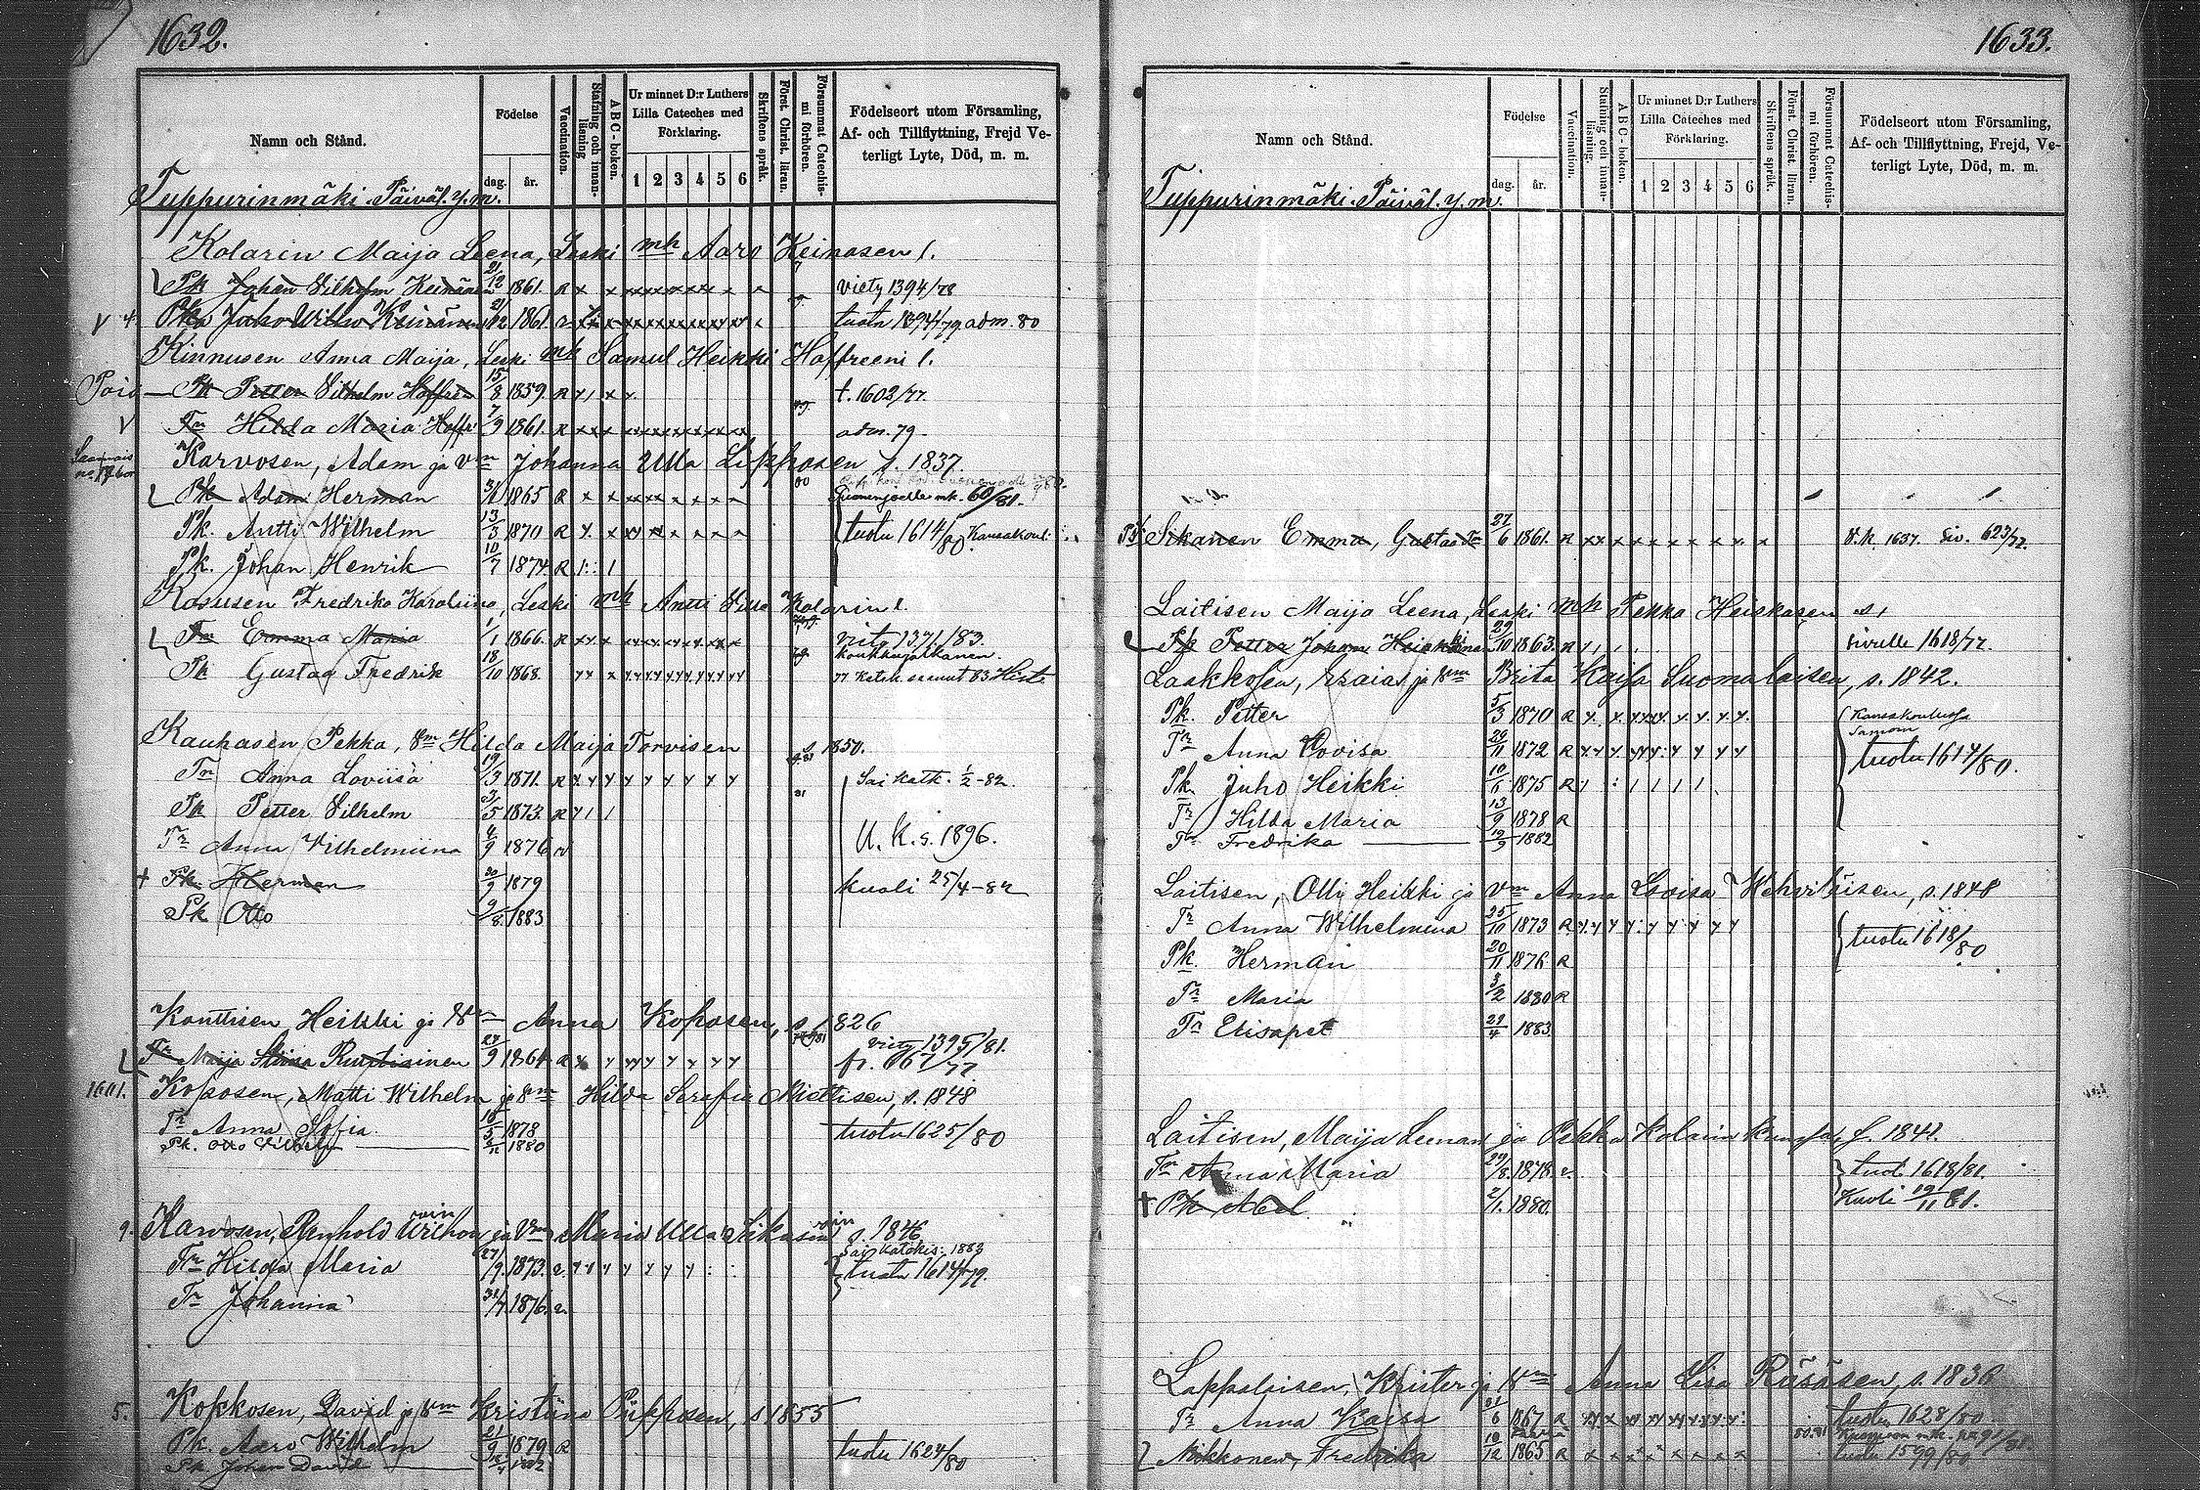 1632.
Namn och Stånd.
Födelse
dag. år.
Vaccination.
Stafning och innan-läsning
ABC-boken.
Ur minnet D:r Luthers Lilla Cateches med Förklaring.
1 2 3 4 5 6
Skriftens språk.
Först. Christ. läran.
Försummat Catechismi förhören.
Födelseort utom Församling, Af- och Tillflyttning, Frejd Veterligt Lyte, Död, m. m.
Tuppurinmäki Päiväl. y. m.
Kolarin Maija Leena, Leski mh Aaro Keinäsen l.
Pk Johan Vilhelm Keinänen 21/12 1861. R viety 1394/78
V 4. Pk Juho Wilho Keinänen 21/12 1861. tuotu 1394/79 adm. 80
Kinnusen Anna Maija, Leski mh Samul Heikki Hoffreeni l.
Pois Pk Petter Vilhelm Hoffren 15/8 1859. R t. 1602/77.
V Tr Hilda Maria Hoffr 7/3 1861. R adm. 79.
Karvosen, Adam ja Vm Johanna Ulla Lipposen s. 1837.
Pk Adam Herman 1865 R 60/81.
Pk. Antti Wilhelm 13/3 1870 R tuotu 1614/80. Kansakoul:
Pk. Johan Henrik 10/7 1874. R
Kosusen Fredrika Karoliina, Leski mh Antti Kolarin l.
Tr Emma Maria 1/1 1866. R viety 1371/83.
Pk Gustaa Fredrik 18/10 1868.
Kauhasen Pekka, Vm Hilda Maija Torvisen s. 1850.
Tr Anna Loviisa 19/3 1871. R Sai kath. 1/2-82.
Pk Petter Vilhelm 3/5 1873. R
Tr Anna Vilhelmiina 4/9 1876 U. K. s. 1896.
† Pk Herman 30/9 1879 kuoli 25/4-82
Pk Otto 9/8 1883
Konttisen Heikki ja Vm Anna Koposen, s. 1826
Tr Maija Ruotsisinen 27/9 1864. R viety 1395/81. fr. 667/77
1601. Koposen, Matti Wilhelm ja Vm Hilda Serafia Miettisen, s. 1848
Tr Anna Sofia 1878 tuotu 1625/80
Pk. Otto Vilhelm 1880
9. Karvosen, Renhold Wilhon ja Vm Maria Ulla Sikasen s. 1846
Sai Katekis: 1883
Tr Hilda Maria 27/9 1873. tuotu 1614/79.
Tr Johanna 31/7 1876.
5. Kopkosen, David ja Vm Kristiina Piipposen, s 1855
Pk. Aaro Wilhelm 21/9 1879 R tuotu 1624/80
Pk Johan David
1633.
Namn och Stånd.
Födelse
dag. år.
Vaccination.
Stafning och innan-läsning.
ABC-boken.
Ur minnet D:r Luthers Lilla Cateches med Förklaring.
1 2 3 4 5 6
Skriftens språk.
Först. Christ. läran.
Försummat Catechismi förhören.
Födelseort utom Församling, Af- och Tillflyttning, Frejd, Veterligt Lyte, Död, m. m.
Tuppurinmäki Päiväl. y. m.
Sikanen Emma, Gustaa Tr 27/6 1861. R 1637. siv. 623/72.
Laitisen Maija Leena, Leski mh Pekka Heiskasen s,
Pk Petter Johan 29/10 1863. R sivulle 1618/77.
Laakkosen, Esaias ja Vm Brita Kaisa Suomalaisen, s. 1842.
Pk. Petter 5/3 1870 R Kansakoulussa
Tr Anna Lovisa 29/11 1872 R tuotu 1617/80.
Pk. Juho Heikki 10/6 1875 R
Tr Hilda Maria 13/9 1878 R
Tr Fredrika 19/9 1882
Laitisen, Olli Heikki ja Vm Anna Lovisa Wehviläisen, s. 1848
Tr Anna Wilhelmina 25/10 1873 R tuotu 1618/80
Pk. Herman 20/11 1876 R
Tr Maria 3/2 1880 R
Tr Elisapet 29/4 1883
Laitisen, Maija Leenan ja Pekka Kolarin kanssa, s. 1841.
Tr Anna Maria 29/8 1878. tuot. 1618/81.
† Pk Abel 2/1. 1880. Kuoli 19/11 81.
Lappalaisen, Krister ja Vm Anna Lisa Räsäsen, s. 1836
Tr Anna Kaisa 21/6 1867 R tuotu 1628/80
Mikkonen, Fredrika 18/12 1865 R tuotu 1599/80